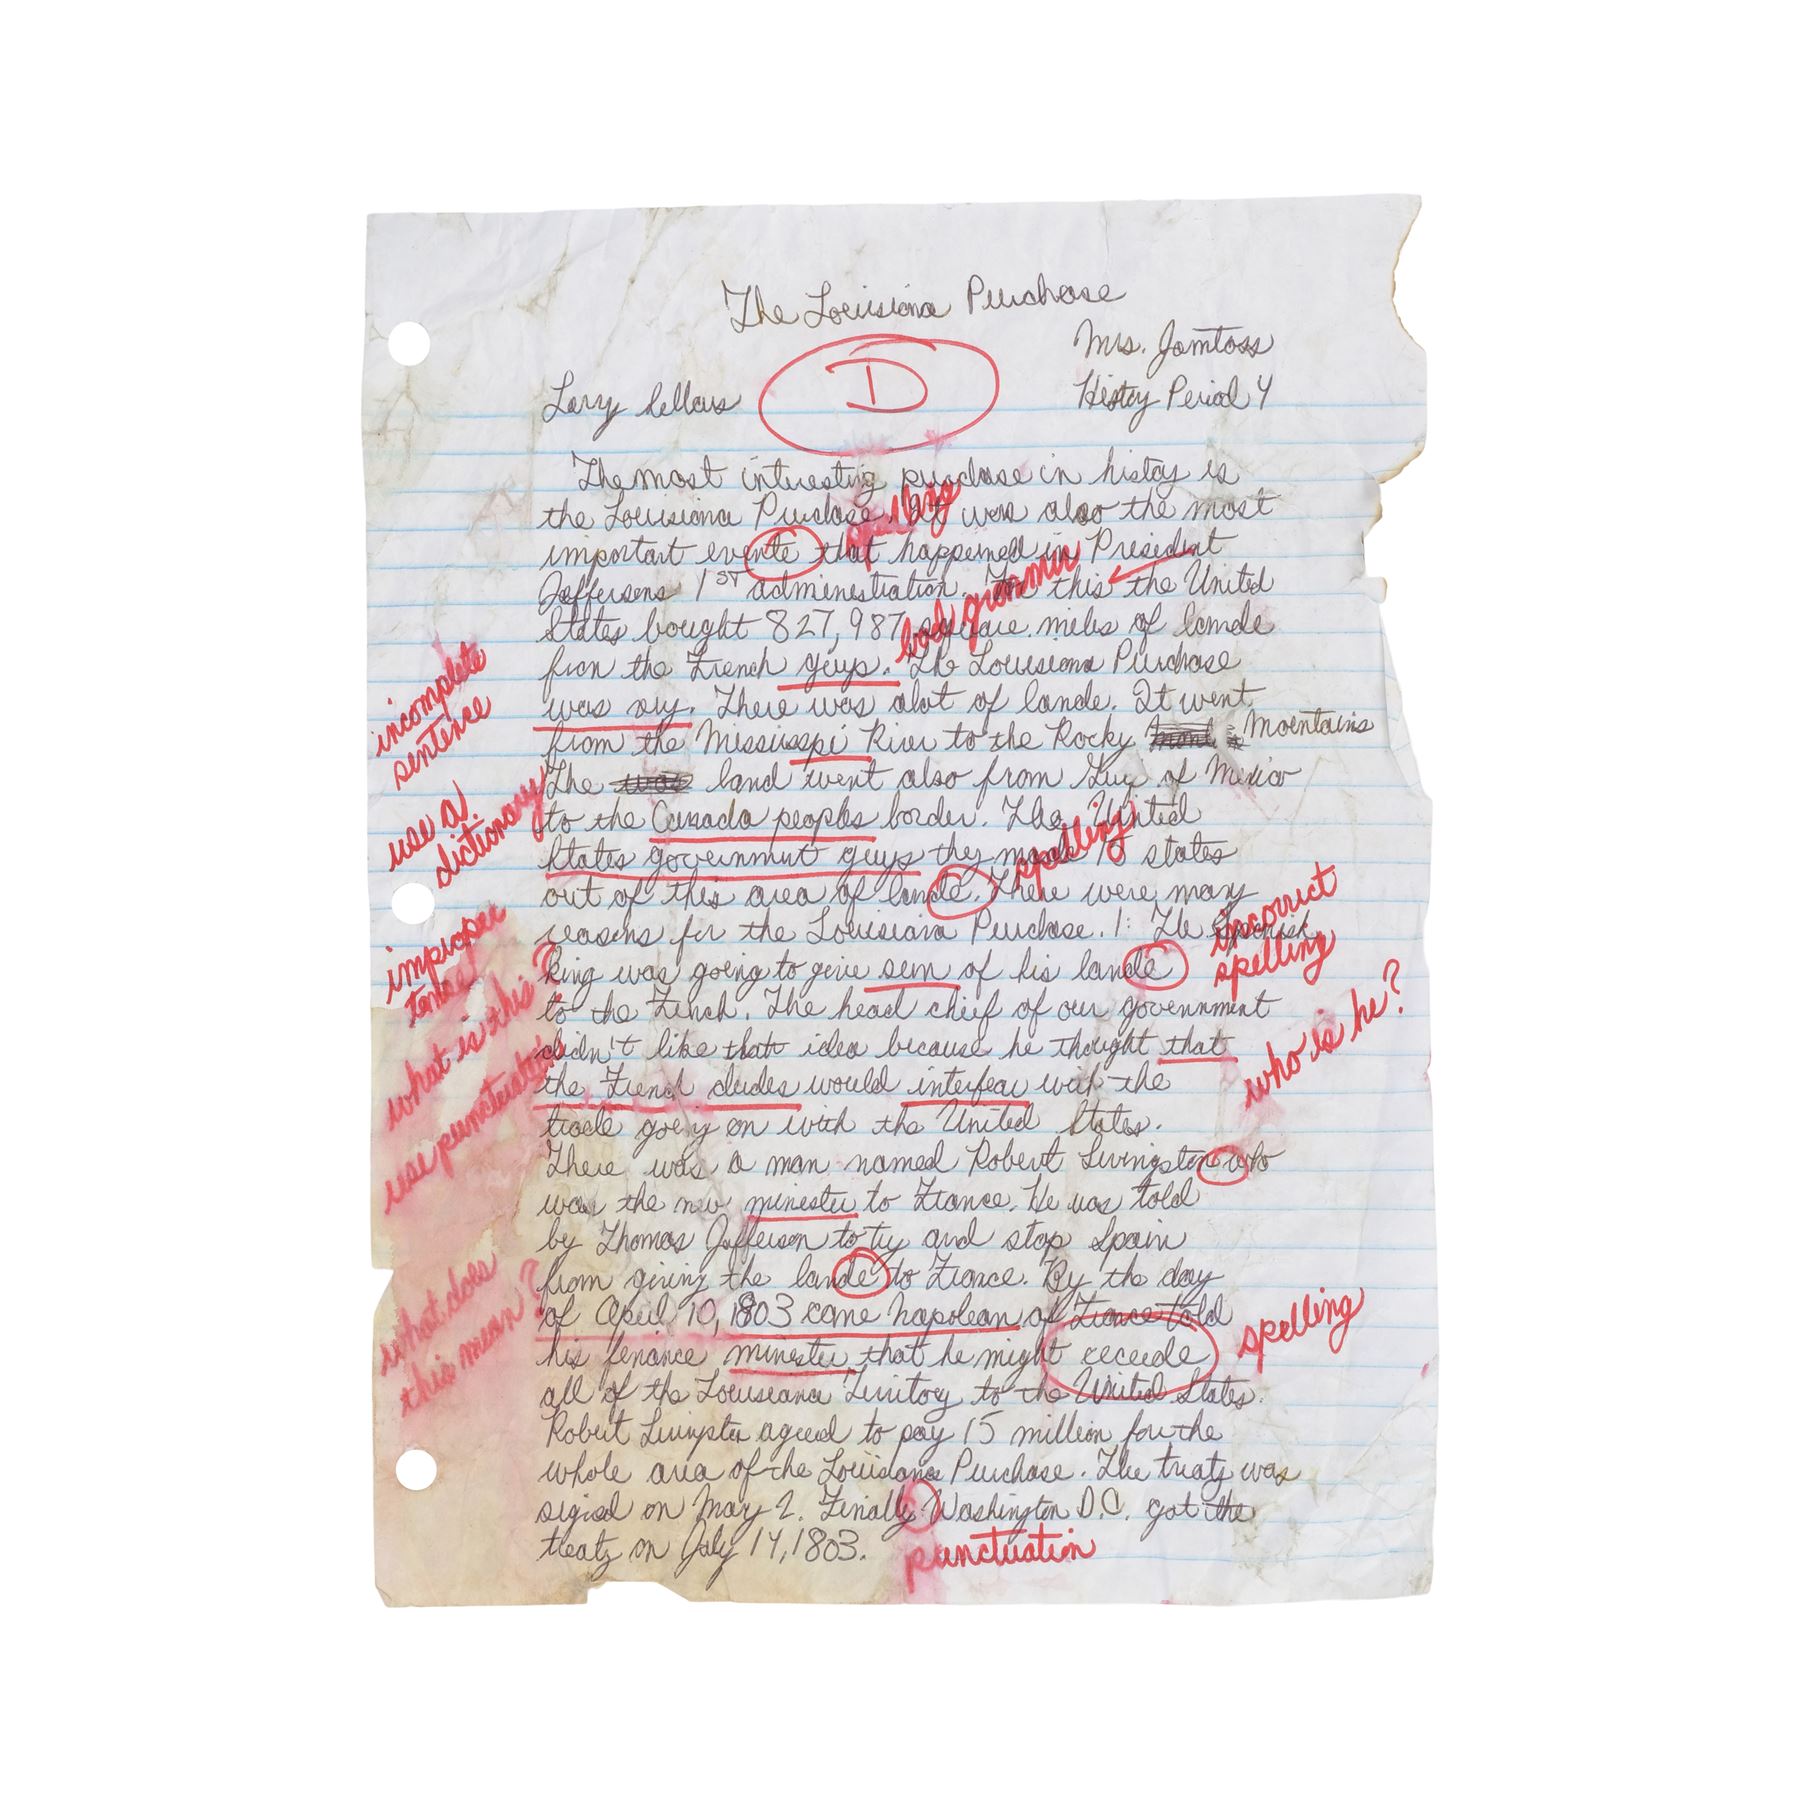 The Louisiana Purchase
Mrs. Jamtoss
D
Lary Sellars
Histoy Period 4
The most interesting purchase in histoy is
spelling
the Louisiana Purchase. It was also the most
important evente that happened in President
Jeffersons 1ST administration. In this the United
bad grammer
States bought 827,987 square miles of lande
fron the French guys. The Louisiana Purchase
incomplete
sentence
was ory. There was alot of lande. It went
from the Mississpi River to the Rocky Mountains
The land went also from of Mexico
use a
dictionary
to the Canada peoples border. The United
spelling
States government guys they made states
out of this area of lande. There were many
incorrect
spelling
reasons for the Louisiana Purchase. 1: The Spanish
improper
tense
king was going to give sum of his lande
to the French. The head chief of our government
what is this?
who is he?
didn't like that idea because he thought that
use punctuation
the French dudes would interfear with the
trade going on with the United States.
There was a man named Robert Livingston who
was the new minester to France. He was told
by Thomas Jefferson to try and stop Spain
from giving the lande to France. By the day
what does
this mean?
of April 10, 1803 came napolean of France told
spelling
his finance minester that he might receede
all of the Louiseana Territory to the United States.
Robert Livingsten agreed to pay 15 million for the
whole area of the Louisiana Purchase. The treaty was
signed on May 2. Finally Washington D.C. got the
punctuation
treaty on July 14, 1803.